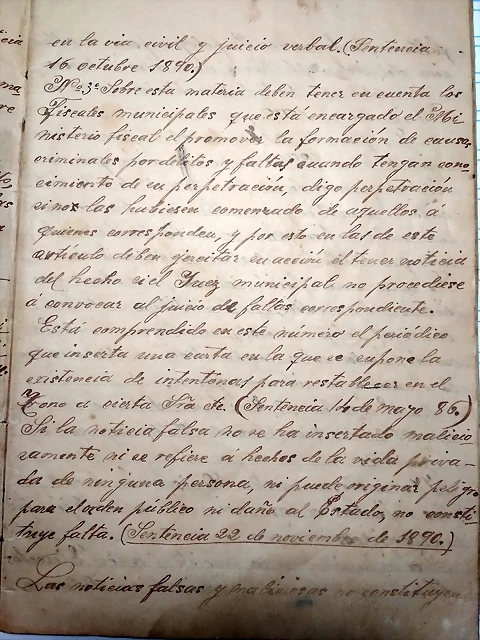 en la via civil y juicio verbal. (Sentencia
16 octubre 1890.)
Nº 3º Sobre esta materia deben tener en cuenta los
Fiscales municipales que está encargado el Mi
nisterio fiscal el promover la formación de causas
criminales por delitos y faltas cuando tengan cono-
cimiento de su perpetración, digo perpetración
si no las hubiesen comenzado de aquellos á
quienes corresponden, y por esto en las de este
artículo deben ejercitar su acción al tener noticia
del hecho si el Juez municipal no procediese
á convocar al juicio de faltas correspondiente.
Está comprendido en este número el periódico
que inserta una carta en la que se supone la
existencia de intentonas para restablecer en el
Trono a cierta Sra etc. (Sentencia 14 de mayo 86.)
Si la noticia falsa no se ha insertado malicio
samente ni se refiere á hechos de la vida priva-
da de ninguna persona, ni puede originar peligro
para el orden público ni daño al Estado, no consti-
tuye falta. (Sentencia 22 de noviembre de 1890.)
Las noticias falsas y maliciosas no constituyen